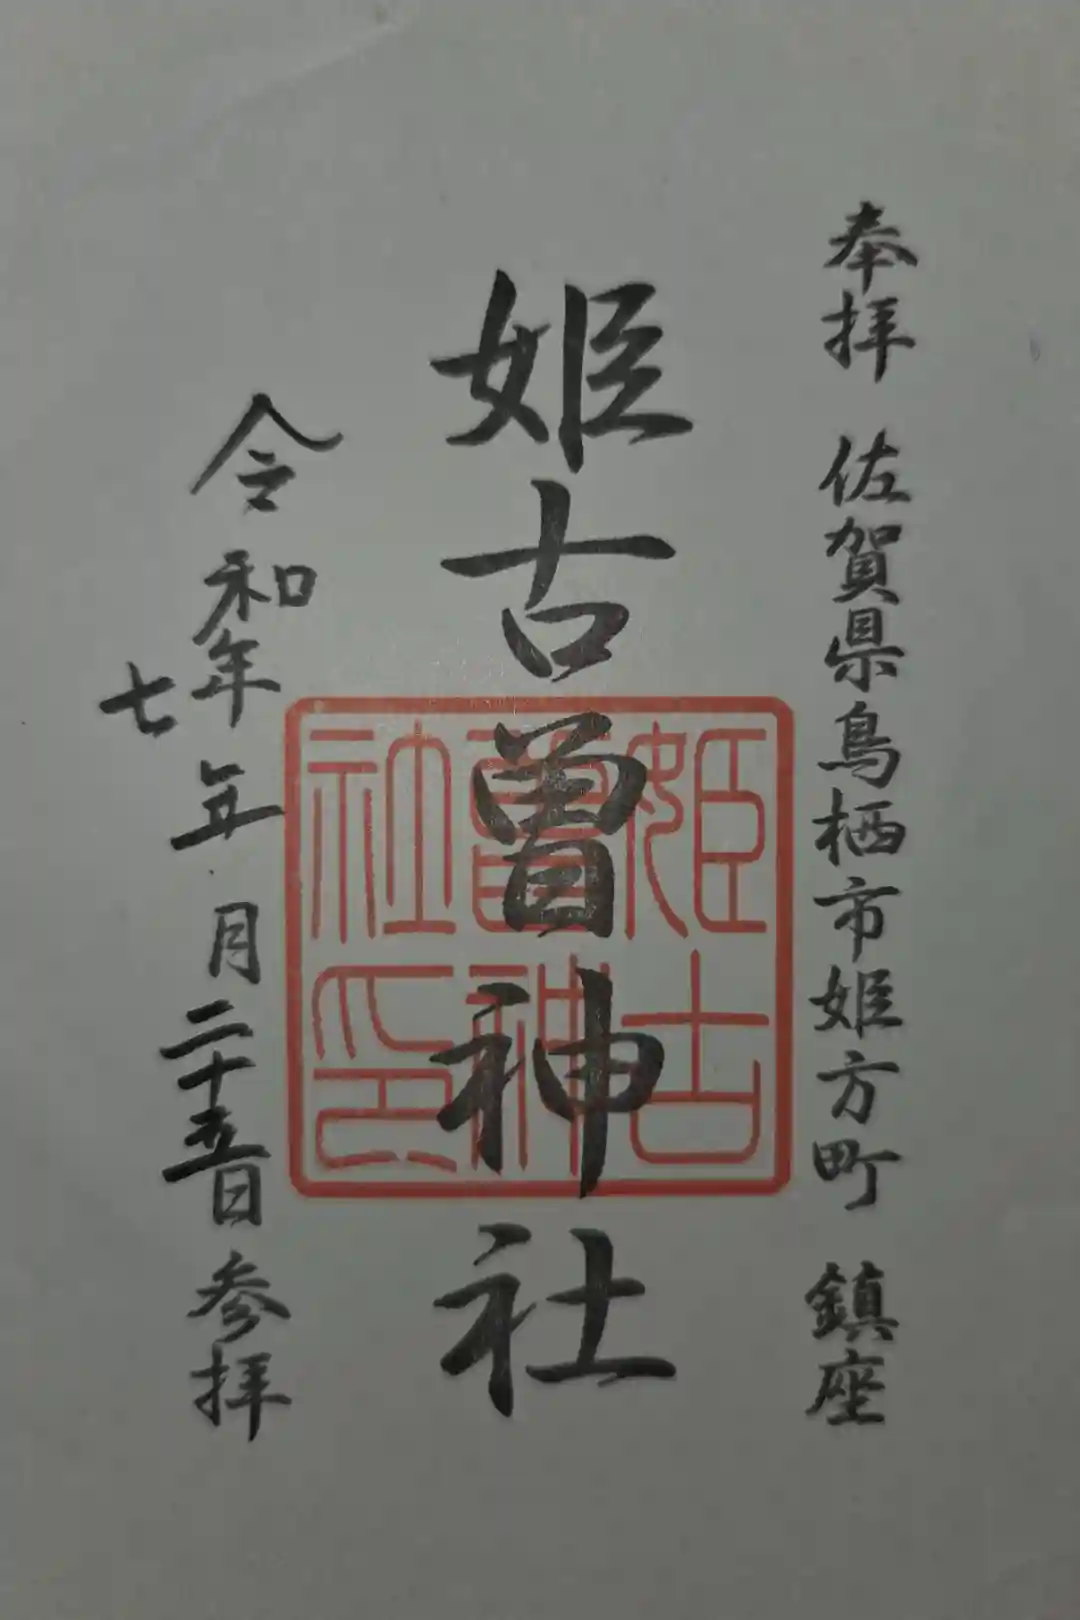 奉拝 佐賀県鳥栖市姫方町 鎮座
姫古曽神社
姫古
曽神
社印
令和七年五月二十五日参拝